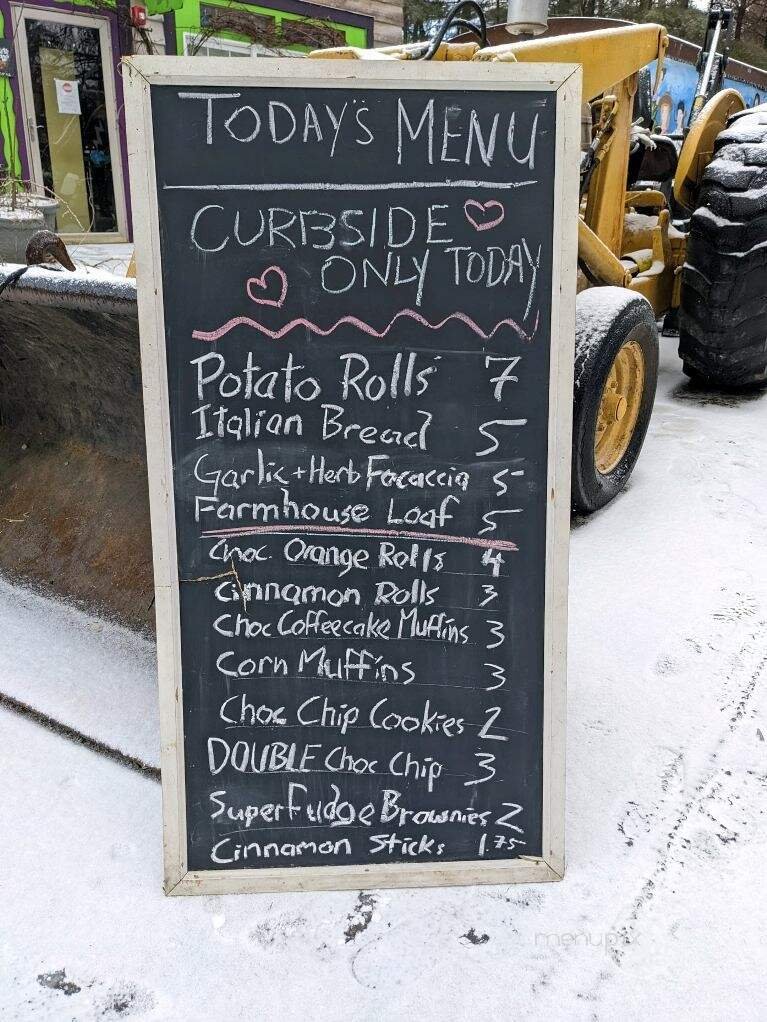 TODAY'S MENU
CURBSIDE
ONLY TODAY
Potato Rolls 7
Italian Bread 5
Garlic + Herb Focaccia 5
Farmhouse Loaf 5
Choc. Orange Rolls 4
Cinnamon Rolls 3
Choc Coffeecake Muffins 3
Corn Muffins 3
Choc Chip Cookies 2
DOUBLE Choc Chip 3
SuperFudge Brownies 2
Cinnamon Sticks 1.75
menupix